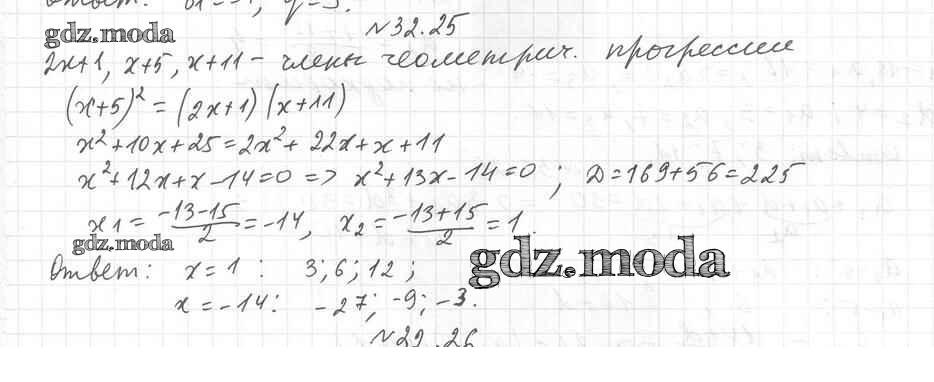 №32.25
gdz.moda
2x+1, x+5, x+11 – члены геометрич. прогрессии
(x+5)² = (2x+1)(x+11)
x²+10x+25=2x²+22x+x+11
x²+12x+x-14=0 => x²+13x-14=0 ; D=169+56=225
x1 = (-13-15)/2 = -14, x2 = (-13+15)/2 = 1.
gdz.moda
Ответ: x=1 : 3; 6; 12 ;
gdz.moda
x=-14: -27; -9; -3.